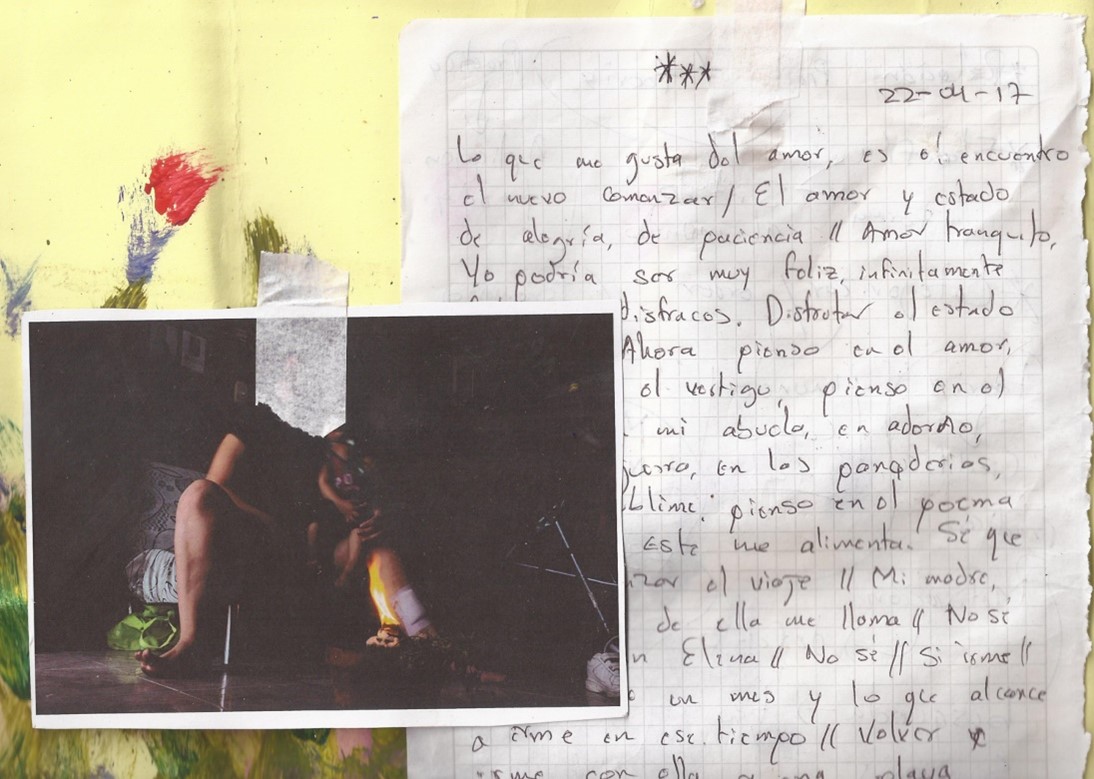 ***
22-04-17
Lo que me gusta del amor, es el encuentro
el nuevo comenzar / El amor y estado
de alegría, de paciencia // Amor tranquilo,
Yo podría ser muy feliz, infinitamente
disfraces. Disfrutar el estado
Ahora pienso en el amor,
el vertigo, pienso en el
mi abuelo, en adorno,
en las panaderias,
pienso en el poema
Este me alimenta. Sé que
el viaje // Mi madre,
de ella me llama // No sé
Elena // No sé // Si irme //
un mes y lo que alcance
a irme en ese tiempo // Volver
con ella a una playa